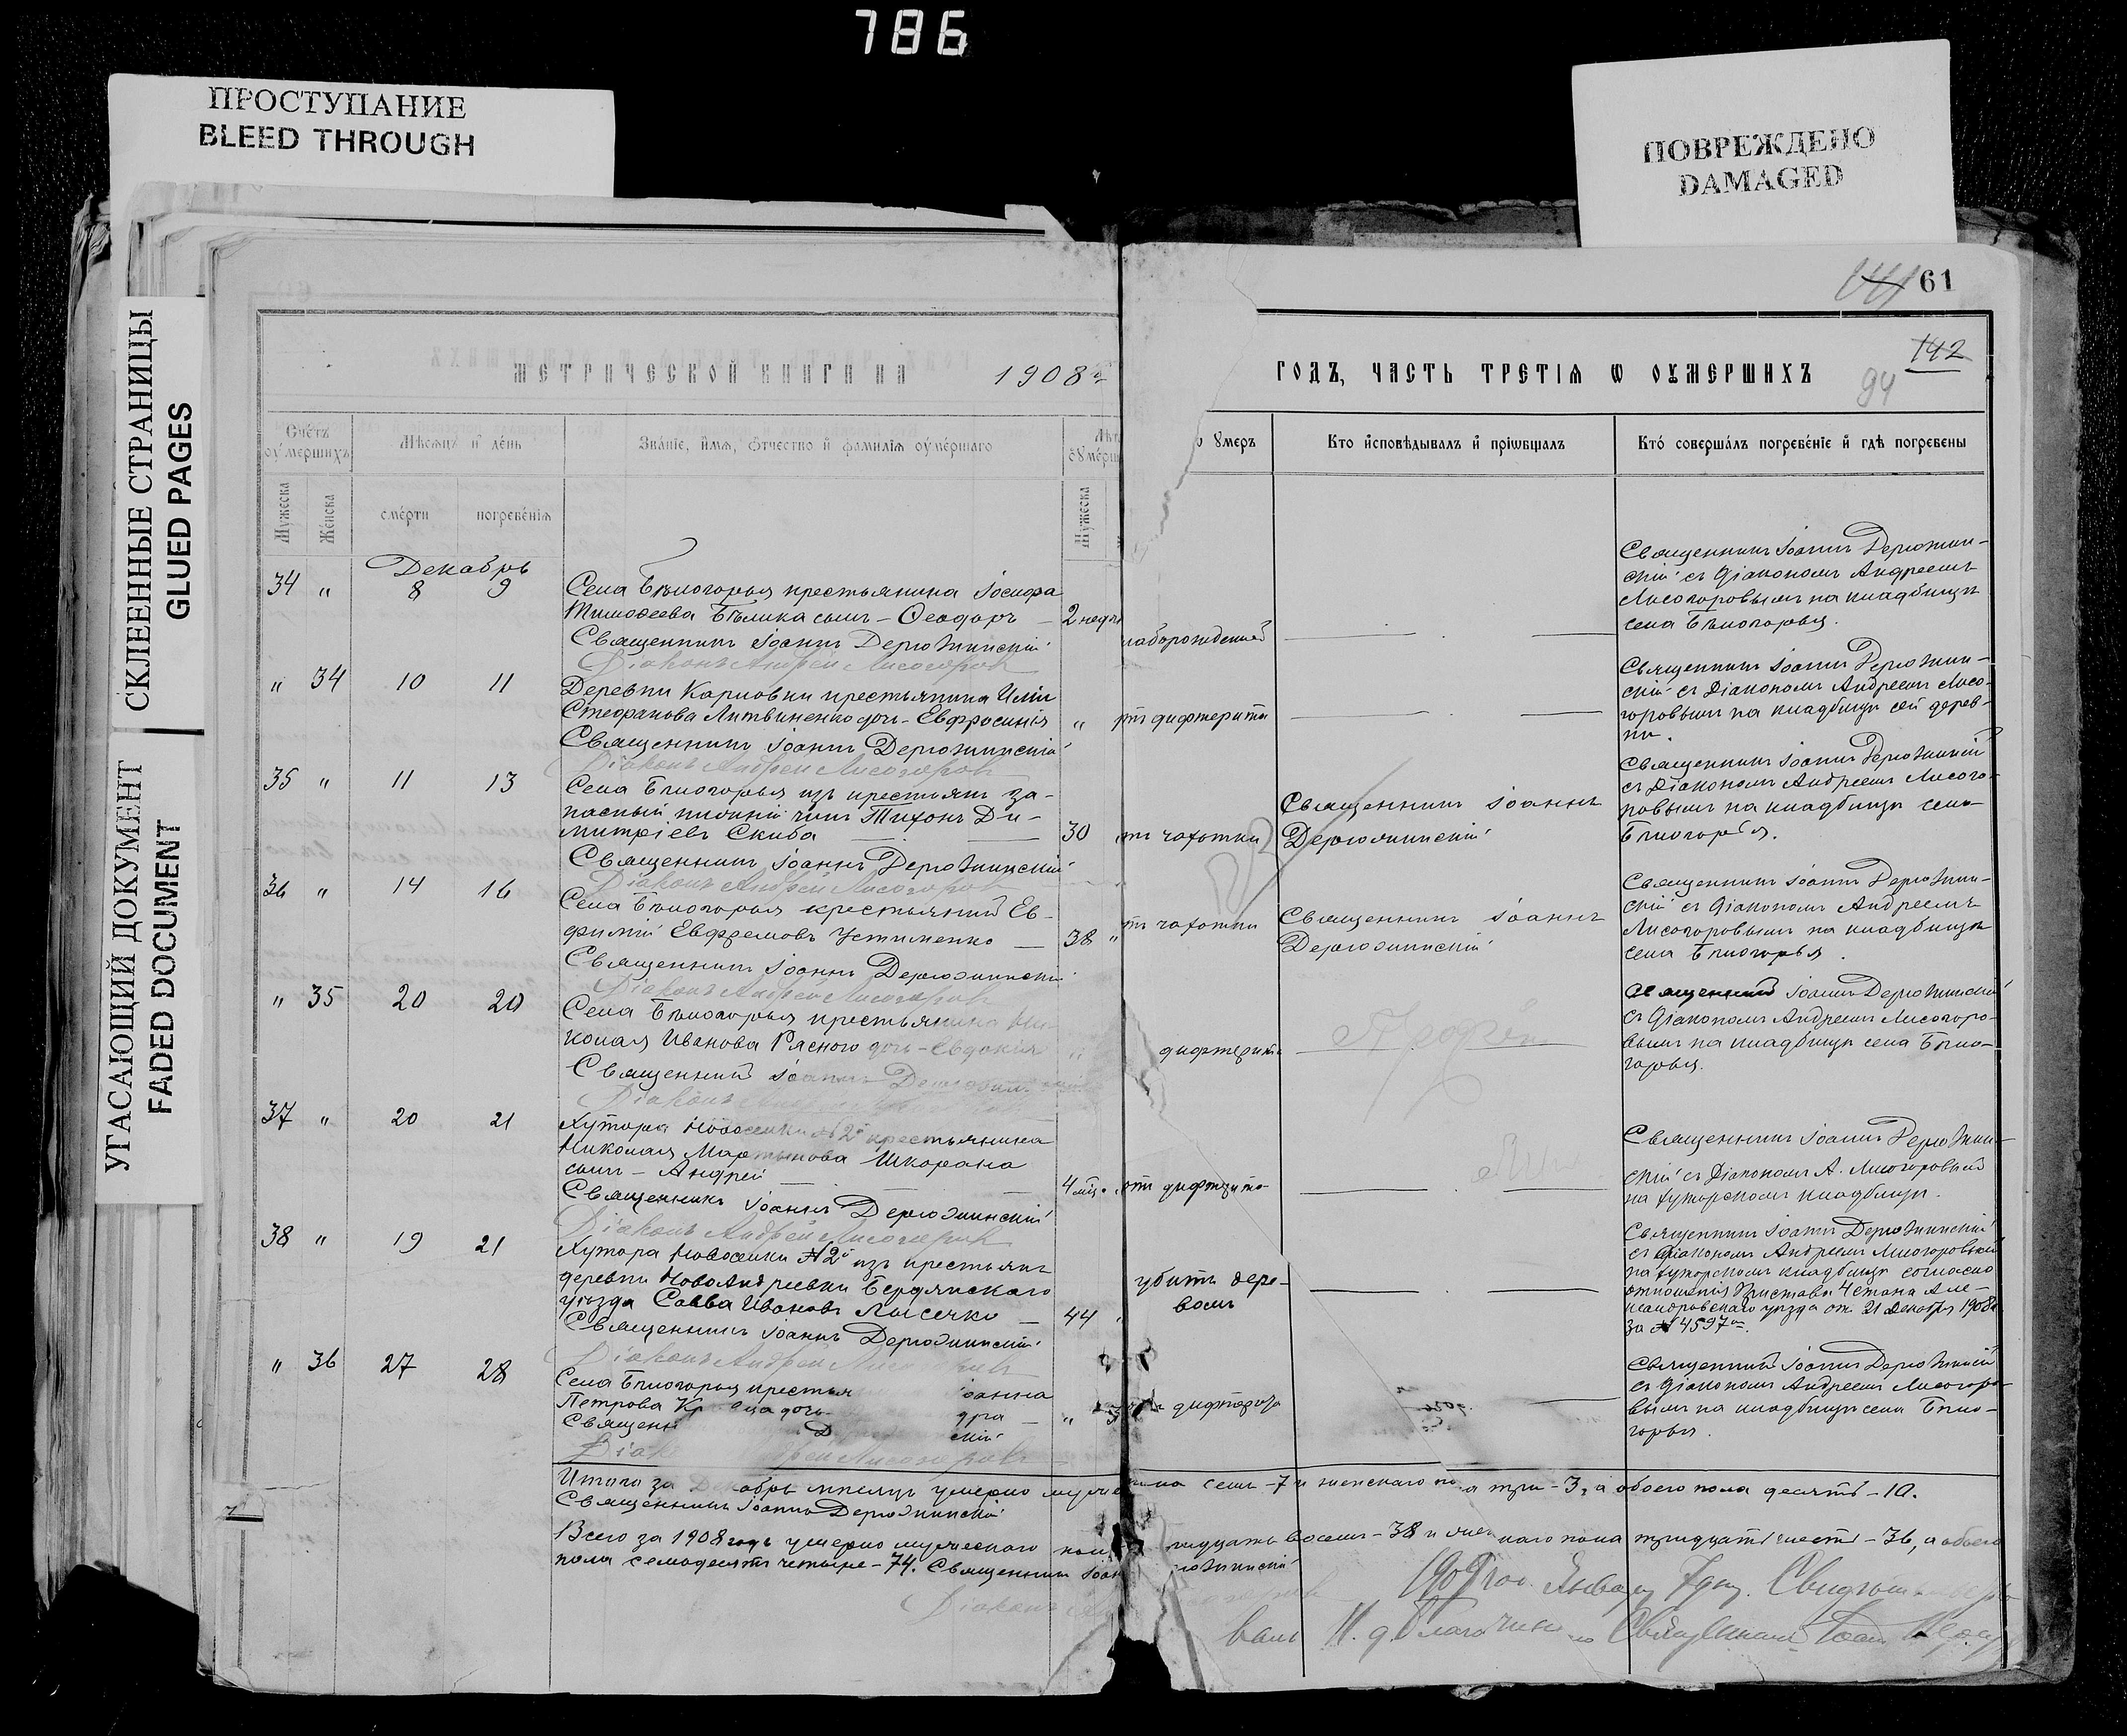 786
ПРОСТУПАНИЕ
BLEED THROUGH
ПОВРЕЖДЕНО
DAMAGED
СКЛЕЕННЫЕ СТРАНИЦЫ
GLUED PAGES
УГАСАЮЩИЙ ДОКУМЕНТ
FADED DOCUMENT
61
142
94
МЕТРИЧЕСКОЙ КНИГИ НА 1908 г.
ГОДЪ, ЧАСТЬ ТРЕТІѦ Ѡ ОУМЕРШИХЪ
Счетъ оумершихъ
Мѣсѧцъ и день
Званіе, имѧ, отчество и фамиліѧ оумершаго
Лѣт
оумерш
умеръ
Кто исповѣдывалъ и пріѡбщалъ
Кто совершалъ погребеніе и гдѣ погребены
Мужеска
Женска
смерти
погребеніѧ
Мужеска
Декабрь
34 " 8 9
Села Бѣлогорья крестьянина Іосифа
Тимоѳеева Бѣлика сынъ – Ѳеодоръ – 2 недѣ
Священникъ Іоаннъ Дерюжинскій
Діаконъ Андрей Лисогоровъ
слаборожденный
Священникъ Іоаннъ Дерюжин-
скій съ Діакономъ Андреемъ
Лисогоровымъ на кладбищѣ
села Бѣлогорья.
" 34 10 11
Деревни Карповки крестьянина Иліи
Стефанова Литвиненко дочь – Евфросинія "
Священникъ Іоаннъ Дерюжинскій
Діаконъ Андрей Лисогоровъ
отъ дифтерита
Священникъ Іоаннъ Дерюжин-
скій съ Діакономъ Андреемъ Лисо-
горовымъ на кладбищѣ сей дерев-
ни.
35 " 11 13
Села Бѣлогорья изъ крестьянъ за-
пасный нижній чинъ Тихонъ Ди-
митріевъ Скиба – 30
Священникъ Іоаннъ Дерюжинскій
Діаконъ Андрей Лисогоровъ
отъ чахотки
Священникъ Іоаннъ
Дерюжинскій
Священникъ Іоаннъ Дерюжинскій
съ Діакономъ Андреемъ Лисого-
ровымъ на кладбищѣ села
Бѣлогорья.
36 " 14 16
Села Бѣлогорья крестьянинъ Ев-
фимій Евфремовъ Устименко – 38 "
Священникъ Іоаннъ Дерюжинскій
Діаконъ Андрей Лисогоровъ
отъ чахотки
Священникъ Іоаннъ
Дерюжинскій
Священникъ Іоаннъ Дерюжин-
скій съ Діакономъ Андреемъ
Лисогоровымъ на кладбищѣ
села Бѣлогорья.
" 35 20 20
Села Бѣлогорья крестьянина Ни-
колая Иванова Рясного дочь – Евдокія "
Священникъ Іоаннъ Дерюжинскій
Діаконъ
дифтерита
Священникъ Іоаннъ Дерюжинскій
съ Діакономъ Андреемъ Лисогоро-
вымъ на кладбищѣ села Бѣло-
горья.
37 " 20 21
Хутора Новоселки №2й крестьянина
Николая Мартынова Шкорана
сынъ – Андрей – 4 мѣс.
Священникъ Іоаннъ Дерюжинскій
Діаконъ Андрей Лисогоровъ
отъ дифтерита
Священникъ Іоаннъ Дерюжин-
скій съ Діакономъ А. Лисогоровымъ
на хуторскомъ кладбищѣ.
38 " 19 21
Хутора Новоселки №2й изъ крестьянъ
деревни НовоАндреевки Бердянскаго
уѣзда Савва Ивановъ Лысечко – 44
Священникъ Іоаннъ Дерюжинскій
Діаконъ Андрей
убитъ дере-
вомъ
Священникъ Іоаннъ Дерюжинскій
съ Діакономъ Андреемъ Лисогоровымъ
на хуторскомъ кладбищѣ согласно
отношенія Пристава 4 стана Але-
ксандровскаго уѣзда отъ 21 Декабря 1908 г.
за №4597м.
" 36 27 28
Села Бѣлогорья крестья оанна
Петрова дочь
Священ скій
Діак Андрей Лисогоровъ
дифтерита
Священникъ Іоаннъ Дерюжинскій
съ Діакономъ Андреемъ Лисогоро-
вымъ на кладбищѣ села Бѣло-
горья.
Итого за Декабрь мѣсяцъ умерло муже ла семь – 7 и женскаго пола три – 3, а обоего пола десять – 10.
Священникъ Іоаннъ Дерюжинскій
Всего за 1908 годъ умерло мужескаго пола тридцать восемь – 38 и женскаго пола тридцать шесть – 36, а обоего
пола семьдесятъ четыре – 74. Священникъ Іоаннъ Дерюжинскій
Діаконъ
1909 год. Января 7 дня. Свидѣтельство-
валъ И. д. Благочиннаго Священникъ Іоаннъ